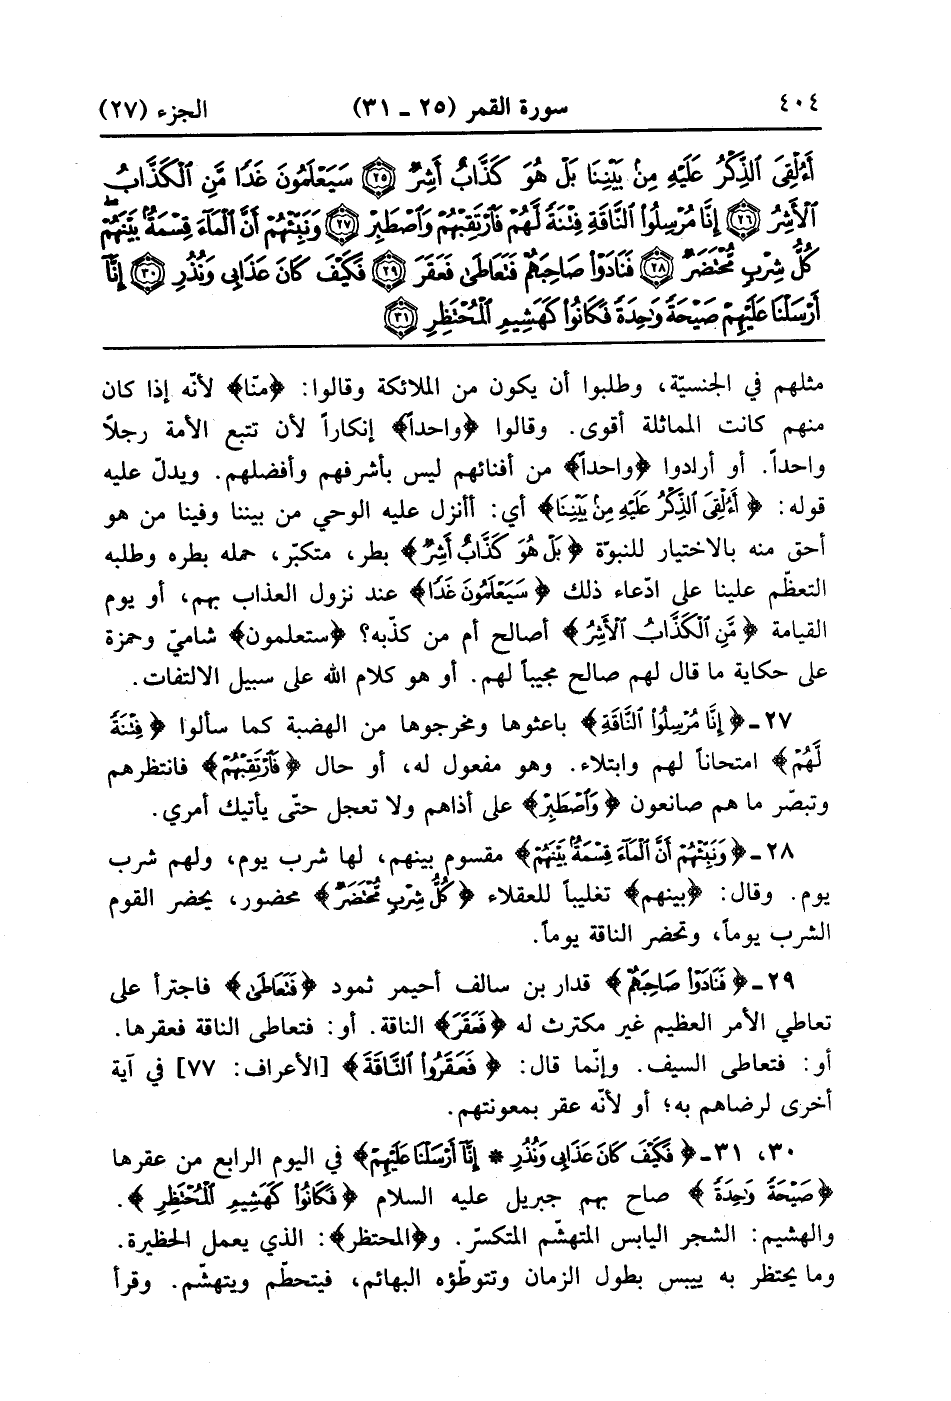 ٤٠٤ سورة القمر (٢٥ ـ ٣١) الجزء (٢٧)
أَءُلْقِىَ ٱلذِّكْرُ عَلَيْهِ مِنۢ بَيْنِنَا بَلْ هُوَ كَذَّابٌ أَشِرٌ ﴿٢٥﴾ سَيَعْلَمُونَ غَدًا مَّنِ ٱلْكَذَّابُ
ٱلْأَشِرُ ﴿٢٦﴾ إِنَّا مُرْسِلُوا۟ ٱلنَّاقَةِ فِتْنَةً لَّهُمْ فَٱرْتَقِبْهُمْ وَٱصْطَبِرْ ﴿٢٧﴾ وَنَبِّئْهُمْ أَنَّ ٱلْمَآءَ قِسْمَةٌۢ بَيْنَهُمْ ۖ
كُلُّ شِرْبٍ مُّحْتَضَرٌ ﴿٢٨﴾ فَنَادَوْا۟ صَاحِبَهُمْ فَتَعَاطَىٰ فَعَقَرَ ﴿٢٩﴾ فَكَيْفَ كَانَ عَذَابِى وَنُذُرِ ﴿٣٠﴾ إِنَّآ
أَرْسَلْنَا عَلَيْهِمْ صَيْحَةً وَٰحِدَةً فَكَانُوا۟ كَهَشِيمِ ٱلْمُحْتَظِرِ ﴿٣١﴾
مثلهم في الجنسيّة، وطلبوا أن يكون من الملائكة وقالوا: ﴿منّا﴾ لأنّه إذا كان
منهم كانت المماثلة أقوى. وقالوا ﴿واحداً﴾ إنكاراً لأن تتبع الأمة رجلاً
واحداً. أو أرادوا ﴿واحداً﴾ من أفنائهم ليس بأشرفهم وأفضلهم. ويدلّ عليه
قوله: ﴿أَءُلْقِىَ ٱلذِّكْرُ عَلَيْهِ مِنۢ بَيْنِنَا﴾ أي: أأنزل عليه الوحي من بيننا وفينا من هو
أحق منه بالاختيار للنبوّة ﴿بَلْ هُوَ كَذَّابٌ أَشِرٌ﴾ بطر، متكبّر، حمله بطره وطلبه
التعظّم علينا على ادّعاء ذلك ﴿سَيَعْلَمُونَ غَدًا﴾ عند نزول العذاب بهم، أو يوم
القيامة ﴿مَّنِ ٱلْكَذَّابُ ٱلْأَشِرُ﴾ أصالح أم من كذّبه؟ ﴿ستعلمون﴾ شاميّ وحمزة
على حكاية ما قال لهم صالح مجيباً لهم. أو هو كلام الله على سبيل الالتفات.
٢٧ ـ ﴿إِنَّا مُرْسِلُوا۟ ٱلنَّاقَةِ﴾ باعثوها ومخرجوها من الهضبة كما سألوا ﴿فِتْنَةً
لَّهُمْ﴾ امتحاناً لهم وابتلاء. وهو مفعول له، أو حال ﴿فَٱرْتَقِبْهُمْ﴾ فانتظرهم
وتبصّر ما هم صانعون ﴿وَٱصْطَبِرْ﴾ على أذاهم ولا تعجل حتّى يأتيك أمري.
٢٨ ـ ﴿وَنَبِّئْهُمْ أَنَّ ٱلْمَآءَ قِسْمَةٌۢ بَيْنَهُمْ﴾ مقسوم بينهم، لها شرب يوم، ولهم شرب
يوم. وقال: ﴿بينهم﴾ تغليباً للعقلاء ﴿كُلُّ شِرْبٍ مُّحْتَضَرٌ﴾ محضور، يحضر القوم
الشرب يوماً، وتحضر الناقة يوماً.
٢٩ ـ ﴿فَنَادَوْا۟ صَاحِبَهُمْ﴾ قدار بن سالف أحيمر ثمود ﴿فَتَعَاطَىٰ﴾ فاجترأ على
تعاطي الأمر العظيم غير مكترث له ﴿فَعَقَرَ﴾ الناقة. أو: فتعاطى الناقة فعقرها.
أو: فتعاطى السيف. وإنّما قال: ﴿فَعَقَرُوا۟ ٱلنَّاقَةَ﴾ [الأعراف: ٧٧] في آية
أخرى لرضاهم به؛ أو لأنّه عقر بمعونتهم.
٣٠، ٣١ ـ ﴿فَكَيْفَ كَانَ عَذَابِى وَنُذُرِ * إِنَّآ أَرْسَلْنَا عَلَيْهِمْ﴾ في اليوم الرابع من عقرها
﴿صَيْحَةً وَٰحِدَةً﴾ صاح بهم جبريل عليه السلام ﴿فَكَانُوا۟ كَهَشِيمِ ٱلْمُحْتَظِرِ﴾.
والهشيم: الشجر اليابس المتهشّم المتكسّر. و﴿المحتظر﴾: الذي يعمل الحظيرة.
وما يحتظر به ييبس بطول الزمان وتتوطّؤه البهائم، فيتحطّم ويتهشّم. وقرأ